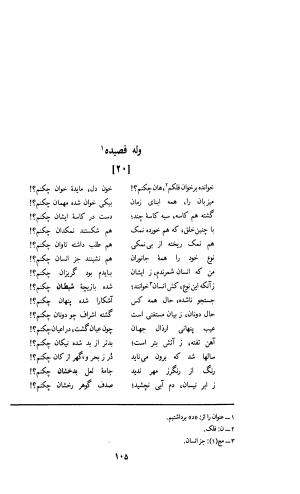 وله قصیده ۱
[۲۰]
خوانده برخوان فلکم۲،هان چکنم؟! خون دل، مایدۀ خوان چکنم؟!
میزبان را، همه ابنای زمان بیکی خوان شده مهمان چکنم؟!
گشته هم کاسه، سیه کاسۀ چند؛ دست در کاسۀ ایشان چکنم؟!
با چنین خلق، که هم خورده نمک هم شکستند نمکدان چکنم؟!
هم نمک ریخته از بی‌نمکی هم طلب داشته تاوان چکنم؟!
نوع خود را همۀ جانوران هم نشینند جز انسان چکنم؟!
من که انسان شمرندم، ز ایشان بایدم بود گریزان چکنم؟!
زآنکه این نوع، کش انسان۳خوانند؛ شده بازیچۀ شیطان چکنم؟!
جستجو ناشده، حال همه کس آشکارا شده پنهان چکنم؟!
دونان، ز بیان مستغنی است گشته اشراف چو دونان چکنم؟!
عیب پنهانی ارذال جهان چون عیان گشت، در اعیان چکنم؟!
آهن تفته، ز آتش بتر است؛ بدتر از بد شده نیکان چکنم؟!
سالها شد که برون می‌ناید دُر ز بحر و گهر از کان چکنم؟!
رنگ از رنگرز مهر ندید جامۀ لعل بدخشان چکنم؟!
ز ابر نیسان، دم آبی نچشید؛ صدف گوهر رخشان چکنم؟!
۱ــ عنوان را از: «ده» برداشتیم.
۲ــ ن: فلک.
۳ــ مج(۱): جز انسان.
۱۰۵